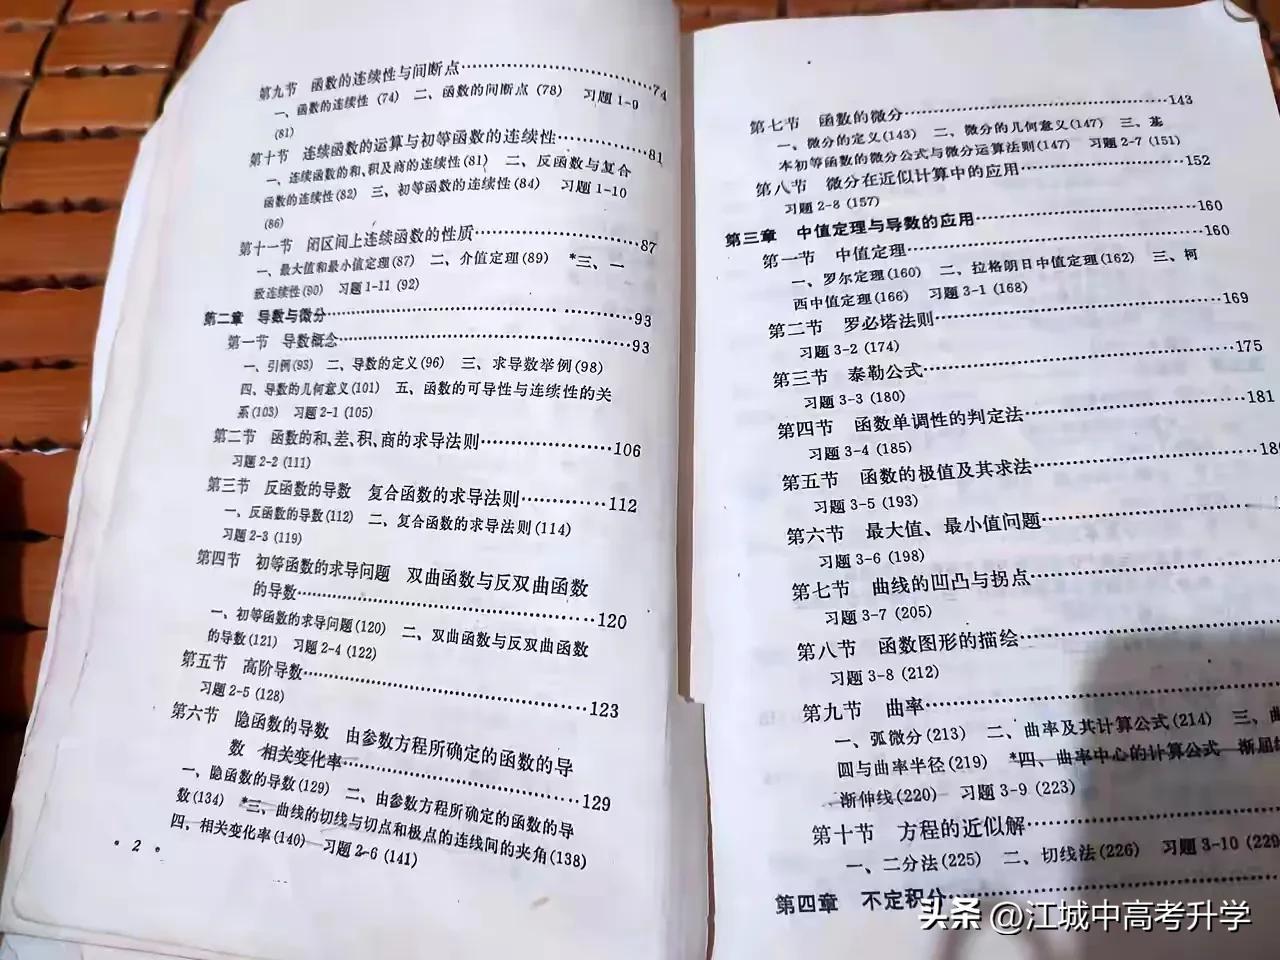 第九节 函数的连续性与间断点……74
一、函数的连续性 (74) 二、函数的间断点 (78) 习题 1-9
(81)
第十节 连续函数的运算与初等函数的连续性……81
一、连续函数的和、积及商的连续性(81) 二、反函数与复合
函数的连续性(82) 三、初等函数的连续性(84) 习题 1-10
(86)
第十一节 闭区间上连续函数的性质……87
一、最大值和最小值定理(87) 二、介值定理(89) *三、一
致连续性(90) 习题 1-11 (92)
第二章 导数与微分……93
第一节 导数概念……93
一、引例(93) 二、导数的定义(96) 三、求导数举例(98)
四、导数的几何意义(101) 五、函数的可导性与连续性的关
系(103) 习题 2-1 (105)
第二节 函数的和、差、积、商的求导法则……106
习题 2-2 (111)
第三节 反函数的导数 复合函数的求导法则……112
一、反函数的导数(112) 二、复合函数的求导法则(114)
习题 2-3 (119)
第四节 初等函数的求导问题 双曲函数与反双曲函数
的导数……120
一、初等函数的求导问题(120) 二、双曲函数与反双曲函数
的导数(121) 习题 2-4 (122)
第五节 高阶导数……123
习题 2-5 (128)
第六节 隐函数的导数 由参数方程所确定的函数的导
数 相关变化率……129
一、隐函数的导数(129) 二、由参数方程所确定的函数的导
数(134) *三、曲线的切线与切点和极点的连线间的夹角(138)
四、相关变化率(140) 习题 2-6 (141)
• 2 •
第七节 函数的微分……143
一、微分的定义(143) 二、微分的几何意义(147) 三、基
本初等函数的微分公式与微分运算法则(147) 习题 2-7 (151)
第八节 微分在近似计算中的应用……152
习题 2-8 (157)
第三章 中值定理与导数的应用……160
第一节 中值定理……160
一、罗尔定理(160) 二、拉格朗日中值定理(162) 三、柯
西中值定理(166) 习题 3-1 (168)
第二节 罗必塔法则……169
习题 3-2 (174)
第三节 泰勒公式……175
习题 3-3 (180)
第四节 函数单调性的判定法……181
习题 3-4 (185)
第五节 函数的极值及其求法……
习题 3-5 (193)
第六节 最大值、最小值问题……
习题 3-6 (198)
第七节 曲线的凹凸与拐点……
习题 3-7 (205)
第八节 函数图形的描绘……
习题 3-8 (212)
第九节 曲率……
一、弧微分(213) 二、曲率及其计算公式(214) 三、曲
圆与曲率半径(219) *四、曲率中心的计算公式 渐屈线
渐伸线(220) 习题 3-9 (223)
第十节 方程的近似解……
一、二分法(225) 二、切线法(226) 习题 3-10 (229
第四章 不定积分……
头条 @江城中高考升学